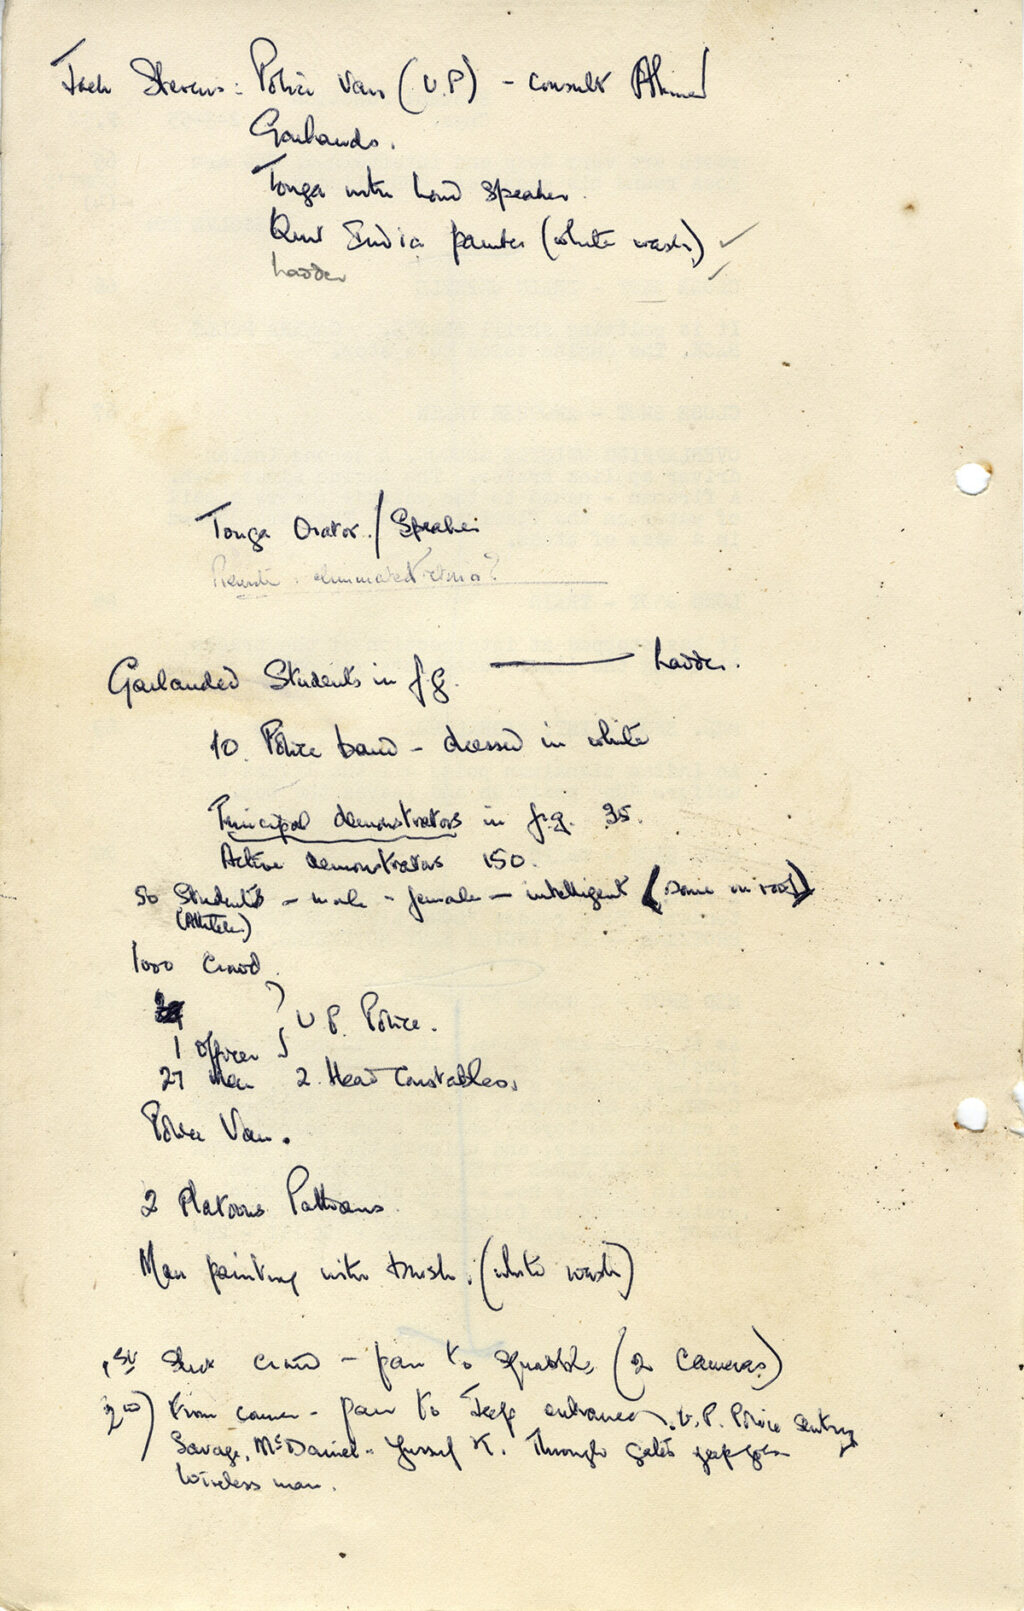 Jack Stevens: Police Van (U.P) - Consult Ahmed
Garlands.
Tonga with loud speaker.
Quit India painter (white wash) ✓
Ladder ✓
Tonga Orator / Speaker
eliminated
Garlanded Students in f.g. — Ladder.
10. Police band - dressed in white
Principal demonstrators in f.g. 35.
Active demonstrators 150.
50 Students - male - female - intelligent (Some on roof)
1000 Crowd.
U P. Police.
1 Officer
27 Men 2. Head Constables,
Police Van.
2 Platoons Pathans
Man painting with brush. (white wash)
1st Shot crowd - pan to squabble (2 Cameras)
2nd) From corner - pan to Jeep entrance, U.P. Police Sentry
Savage, McDaniel - Yussuf K. Through gates jeep goes
Wireless man.